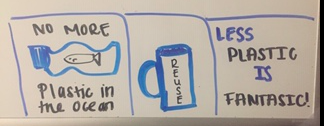 NO MORE
Plastic in
the ocean
REUSE
LESS
PLASTIC
IS
FANTASIC!